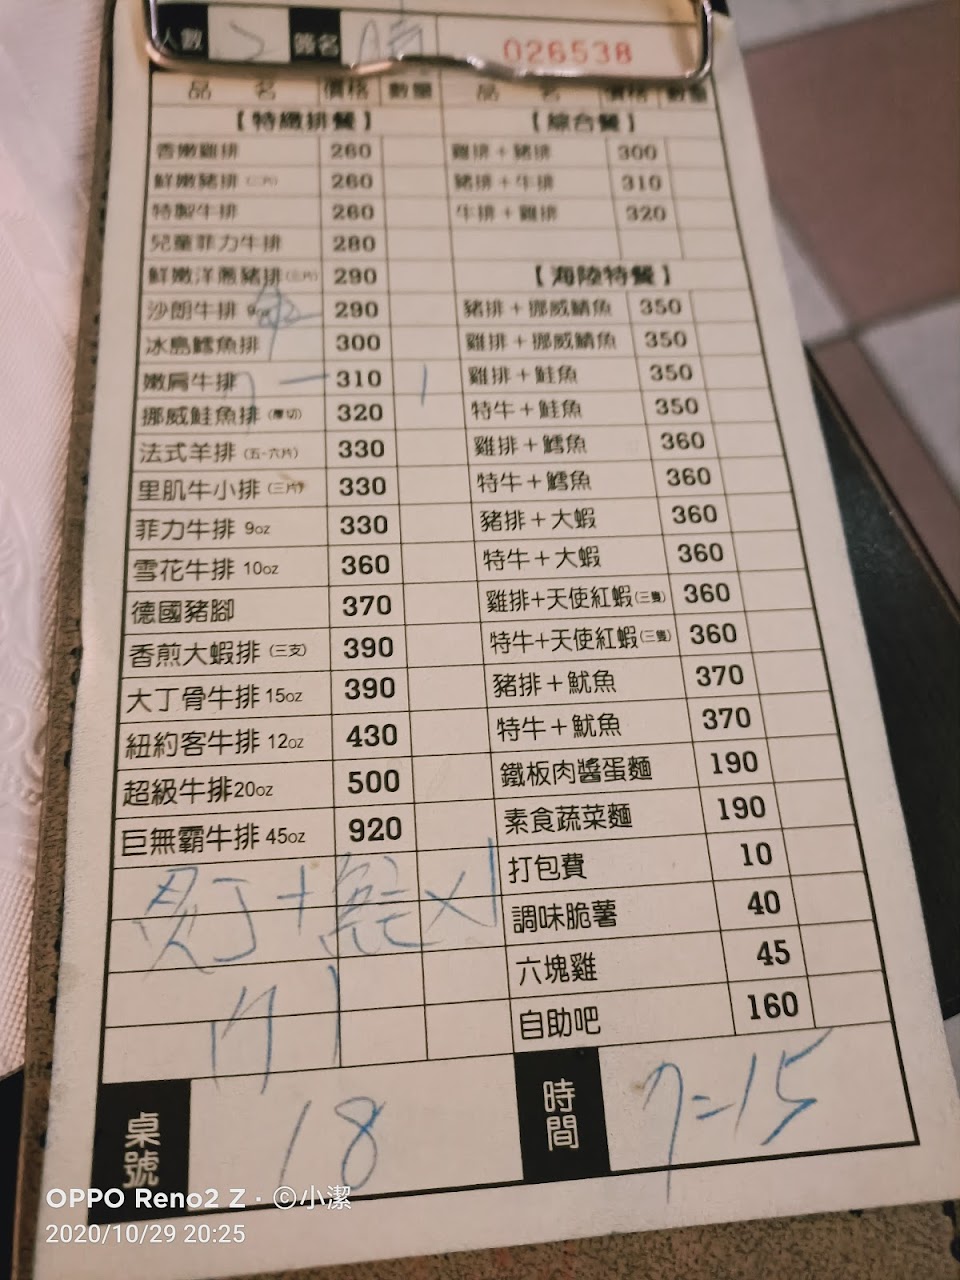 人數 2 簽名
026538
品名 價格 數量
【特緻排餐】
香嫩雞排 260
鮮嫩豬排(二片) 260
特製牛排 260
兒童菲力牛排 280
鮮嫩洋蔥豬排(三片) 290
沙朗牛排 290
冰島鱈魚排 300
嫩肩牛排 310 1
挪威鮭魚排(厚切) 320
法式羊排(五-六片) 330
里肌牛小排(三片) 330
菲力牛排 9oz 330
雪花牛排 10oz 360
德國豬腳 370
香煎大蝦排(三支) 390
大丁骨牛排 15oz 390
紐約客牛排 12oz 430
超級牛排20oz 500
巨無霸牛排 45oz 920
品名 價格 數量
【綜合餐】
雞排+豬排 300
豬排+牛排 310
牛排+雞排 320
【海陸特餐】
豬排+挪威鯖魚 350
雞排+挪威鯖魚 350
雞排+鮭魚 350
特牛+鮭魚 350
雞排+鱈魚 360
特牛+鱈魚 360
豬排+大蝦 360
特牛+大蝦 360
雞排+天使紅蝦(三隻) 360
特牛+天使紅蝦(三隻) 360
豬排+魷魚 370
特牛+魷魚 370
鐵板肉醬蛋麵 190
素食蔬菜麵 190
打包費 10
調味脆薯 40
六塊雞 45
自助吧 160
桌號 18
時間 7=15
OPPO Reno2 Z · ©小潔
2020/10/29 20:25